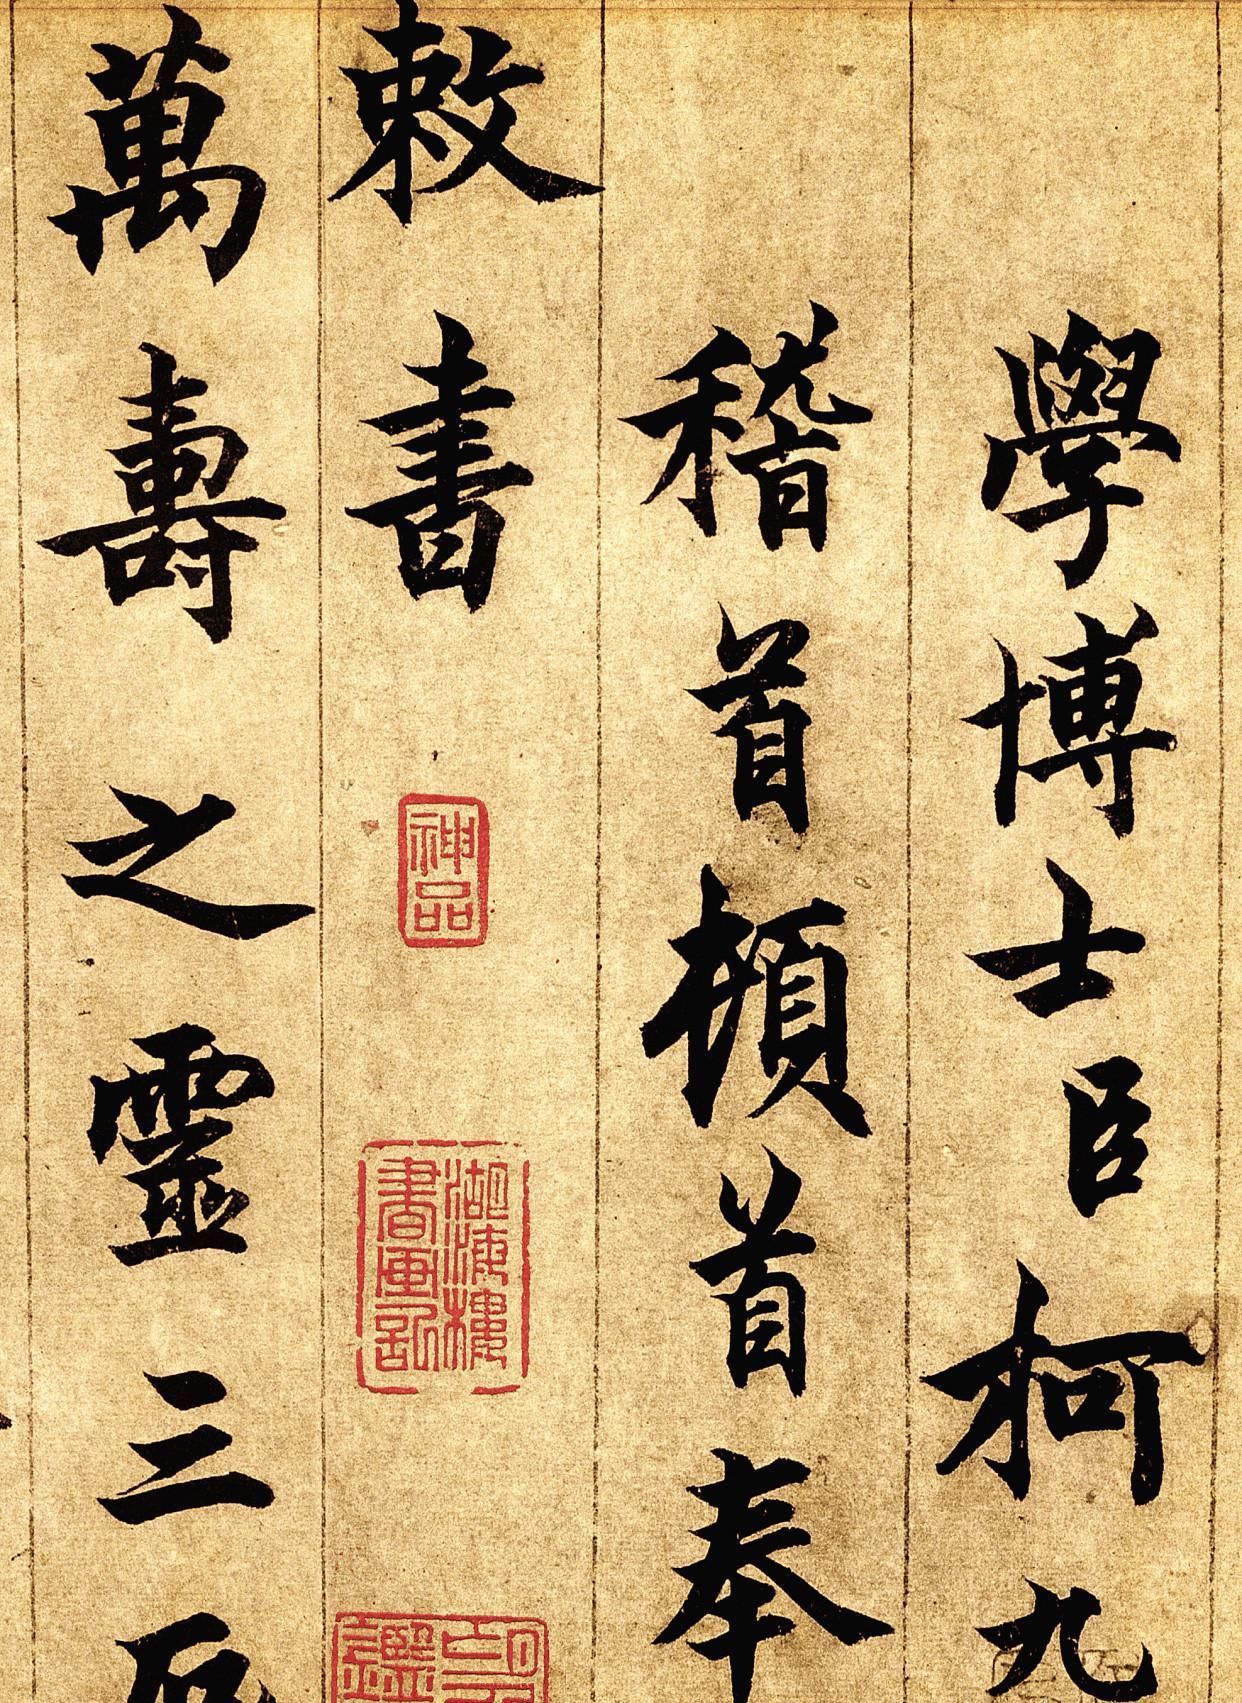 學博士臣柯九
稽首頓首奉
敕書
神品
湖海樓
書画記
萬壽之靈三